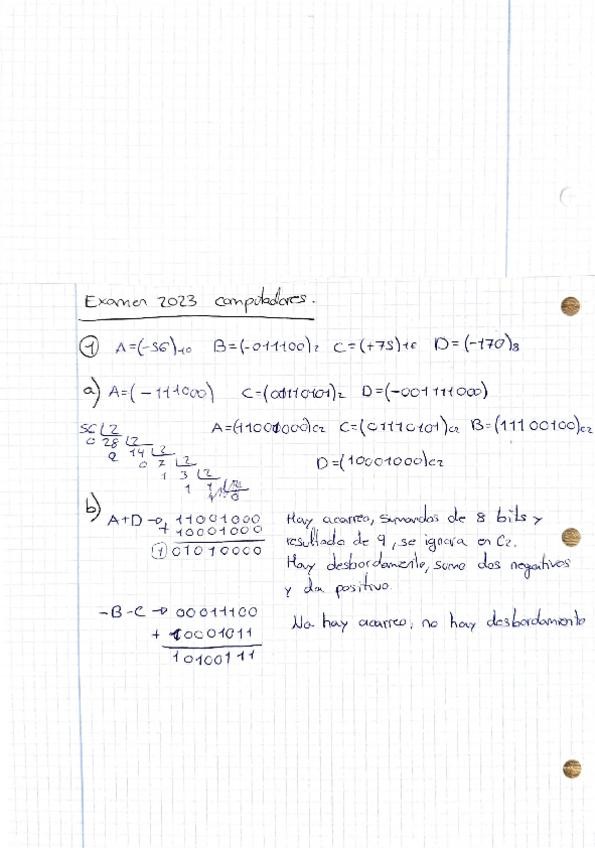 Examen 2023 computadores.
① A=(-56)₁₀ B=(-011100)₂ C=(+75)₁₆ D=(-170)₈
a) A=(-111000) C=(01110101)₂ D=(-001111000)
A=(11001000)C2 C=(01110101)C2 B=(11100100)C2
56 L2
0 28 L2
0 14 L2
0 7 L2
1 3 L2
1 1
D=(10001000)C2
b) A+D → 11001000
+ 10001000
① 01010000
Hay acarreo, sumandos de 8 bits y
resultado de 9, se ignora en C2.
Hay desbordamiento, sumo dos negativos
y da positivo.
-B-C → 00011100
+ 10001011
10100111
No hay acarreo, no hay desbordamiento